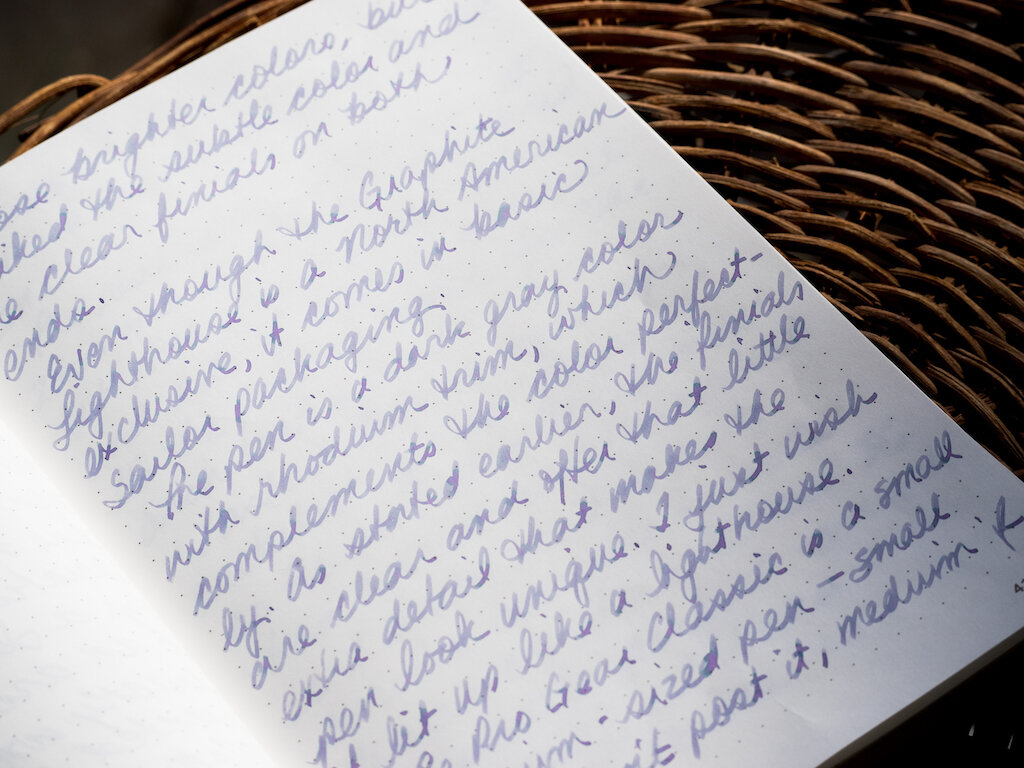 brighter colors, but
liked the subtle color and
clear finials on both
ends.
Even though the Graphite
Lighthouse is a North American
exclusive, it comes in basic
Sailor packaging.
The pen is a dark gray color
with rhodium trim, which
complements the color perfect-
ly. As stated earlier, the finials
are clear and offer that little
extra detail that makes the
pen look unique. I just wish
it lit up like a lighthouse.
Pro Gear Classic is a small
- sized pen - small
it post it, medium if